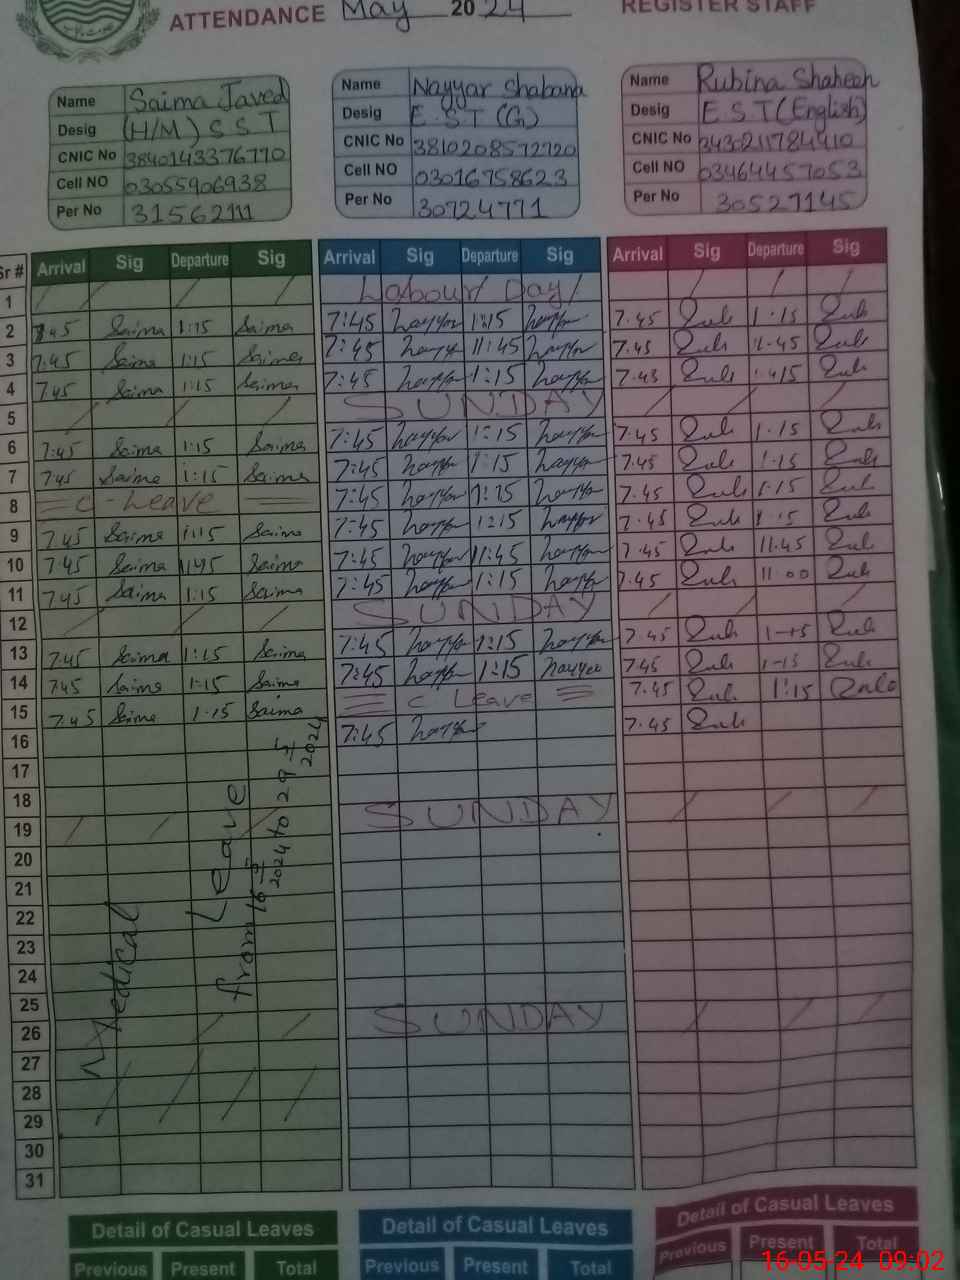 ATTENDANCE May 2024 REGISTER STAFF
Name Saima Javed Name Nayyar Shabana Name Rubina Shaheen
Desig (H/M) S S T Desig E.S.T (G) Desig E.S.T (English)
CNIC No 3840143376770 CNIC No 3810208572720 CNIC No 3430211784410
Cell NO 03055906938 Cell NO 03016758623 Cell NO 03464457053
Per No 31562111 Per No 30724771 Per No 30527145
Sr # Arrival Sig Departure Sig Arrival Sig Departure Sig Arrival Sig Departure Sig
1 Labour Day
2 7:45 Saima 1:15 Saima 7:45 Nayyar 1:15 Nayyar 7.45 Rub 1.15 Rub
3 7:45 Saima 1:15 Saima 7:45 Nayyar 11:45 Nayyar 7.45 Rub 11.45 Rub
4 7.45 Saima 1:15 Saima 7:45 Nayyar 1:15 Nayyar 7.45 Rub Rub
5 SUNDAY
6 7:45 Saima 1:15 Saima 7:45 Nayyar 1:15 Nayyar 7.45 Rub 1.15 Rub
7 7.45 Saima 1:15 Saima 7:45 Nayyar 1:15 Nayyar 7.45 Rub 1.15 Rub
8 C-Leave 7:45 Nayyar 1:15 Nayyar 7.45 Rub 1.15 Rub
9 7.45 Saima 1:15 Saima 7:45 Nayyar 1:15 Nayyar 7.45 Rub 1.15 Rub
10 7.45 Saima 11:45 Saima 7:45 Nayyar 11:45 Nayyar 7.45 Rub 11.45 Rub
11 7.45 Saima 1:15 Saima 7:45 Nayyar 1:15 Nayyar 7.45 Rub 11.00 Rub
12 SUNDAY
13 7.45 Saima 1:15 Saima 7:45 Nayyar 1:15 Nayyar 7.45 Rub 1-15 Rub
14 7.45 Saima 1:15 Saima 7:45 Nayyar 1:15 Nayyar 7.45 Rub 1-15 Rub
15 7.45 Saima 1.15 Saima C Leave 7.45 Rub 1:15 Rub
16 7:45 Nayyar 7.45 Rub
17
18
19 SUNDAY
20
21
22
23
24
25
26 SUNDAY
27
28
29
30
31
Medical Leave
from 16 5/2024 to 29 5/2024
Detail of Casual Leaves Detail of Casual Leaves Detail of Casual Leaves
Previous Present Total Previous Present Total Previous Present Total
16-05-24 09:02